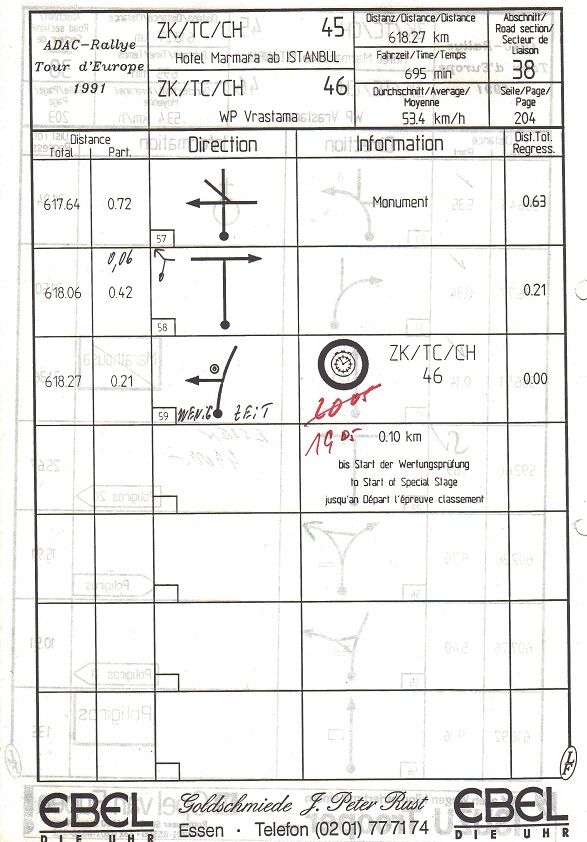 ADAC-Rallye
Tour d'Europe
1991
ZK/TC/CH 45
Hotel Marmara ab ISTANBUL
ZK/TC/CH 46
WP Vrastama
Distanz/Distance/Distance
618.27 km
Fahrzeit/Time/Temps
695 min
Durchschnitt/Average/
Moyenne
53.4 km/h
Abschnitt/
Road section/
Secteur de
Liaison
38
Seite/Page/
Page
204
Distance
Total Part.
Direction
Information
Dist.Tot.
Regress.
617.64 0.72
57
Monument
0.63
0,06
618.06 0.42
58
0.21
618.27 0.21
59 WENIG ZEIT
ZK/TC/CH
46
0.00
20 05
19 05
0.10 km
bis Start der Wertungsprüfung
to Start of Special Stage
jusqu'an Départ l'épreuve classement
EBEL
DIE UHR
Goldschmiede J. Peter Rust
Essen · Telefon (02 01) 777174
EBEL
DIE UHR